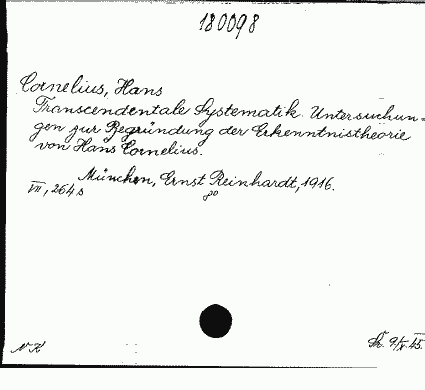 180098
Cornelius, Hans
Transcendentale Systematik. Untersuchun-
gen zur Begründung der Erkenntnistheorie
von Hans Cornelius.
München, Ernst Reinhardt, 1916.
VII, 264 s 8°
N K 9/X 45.